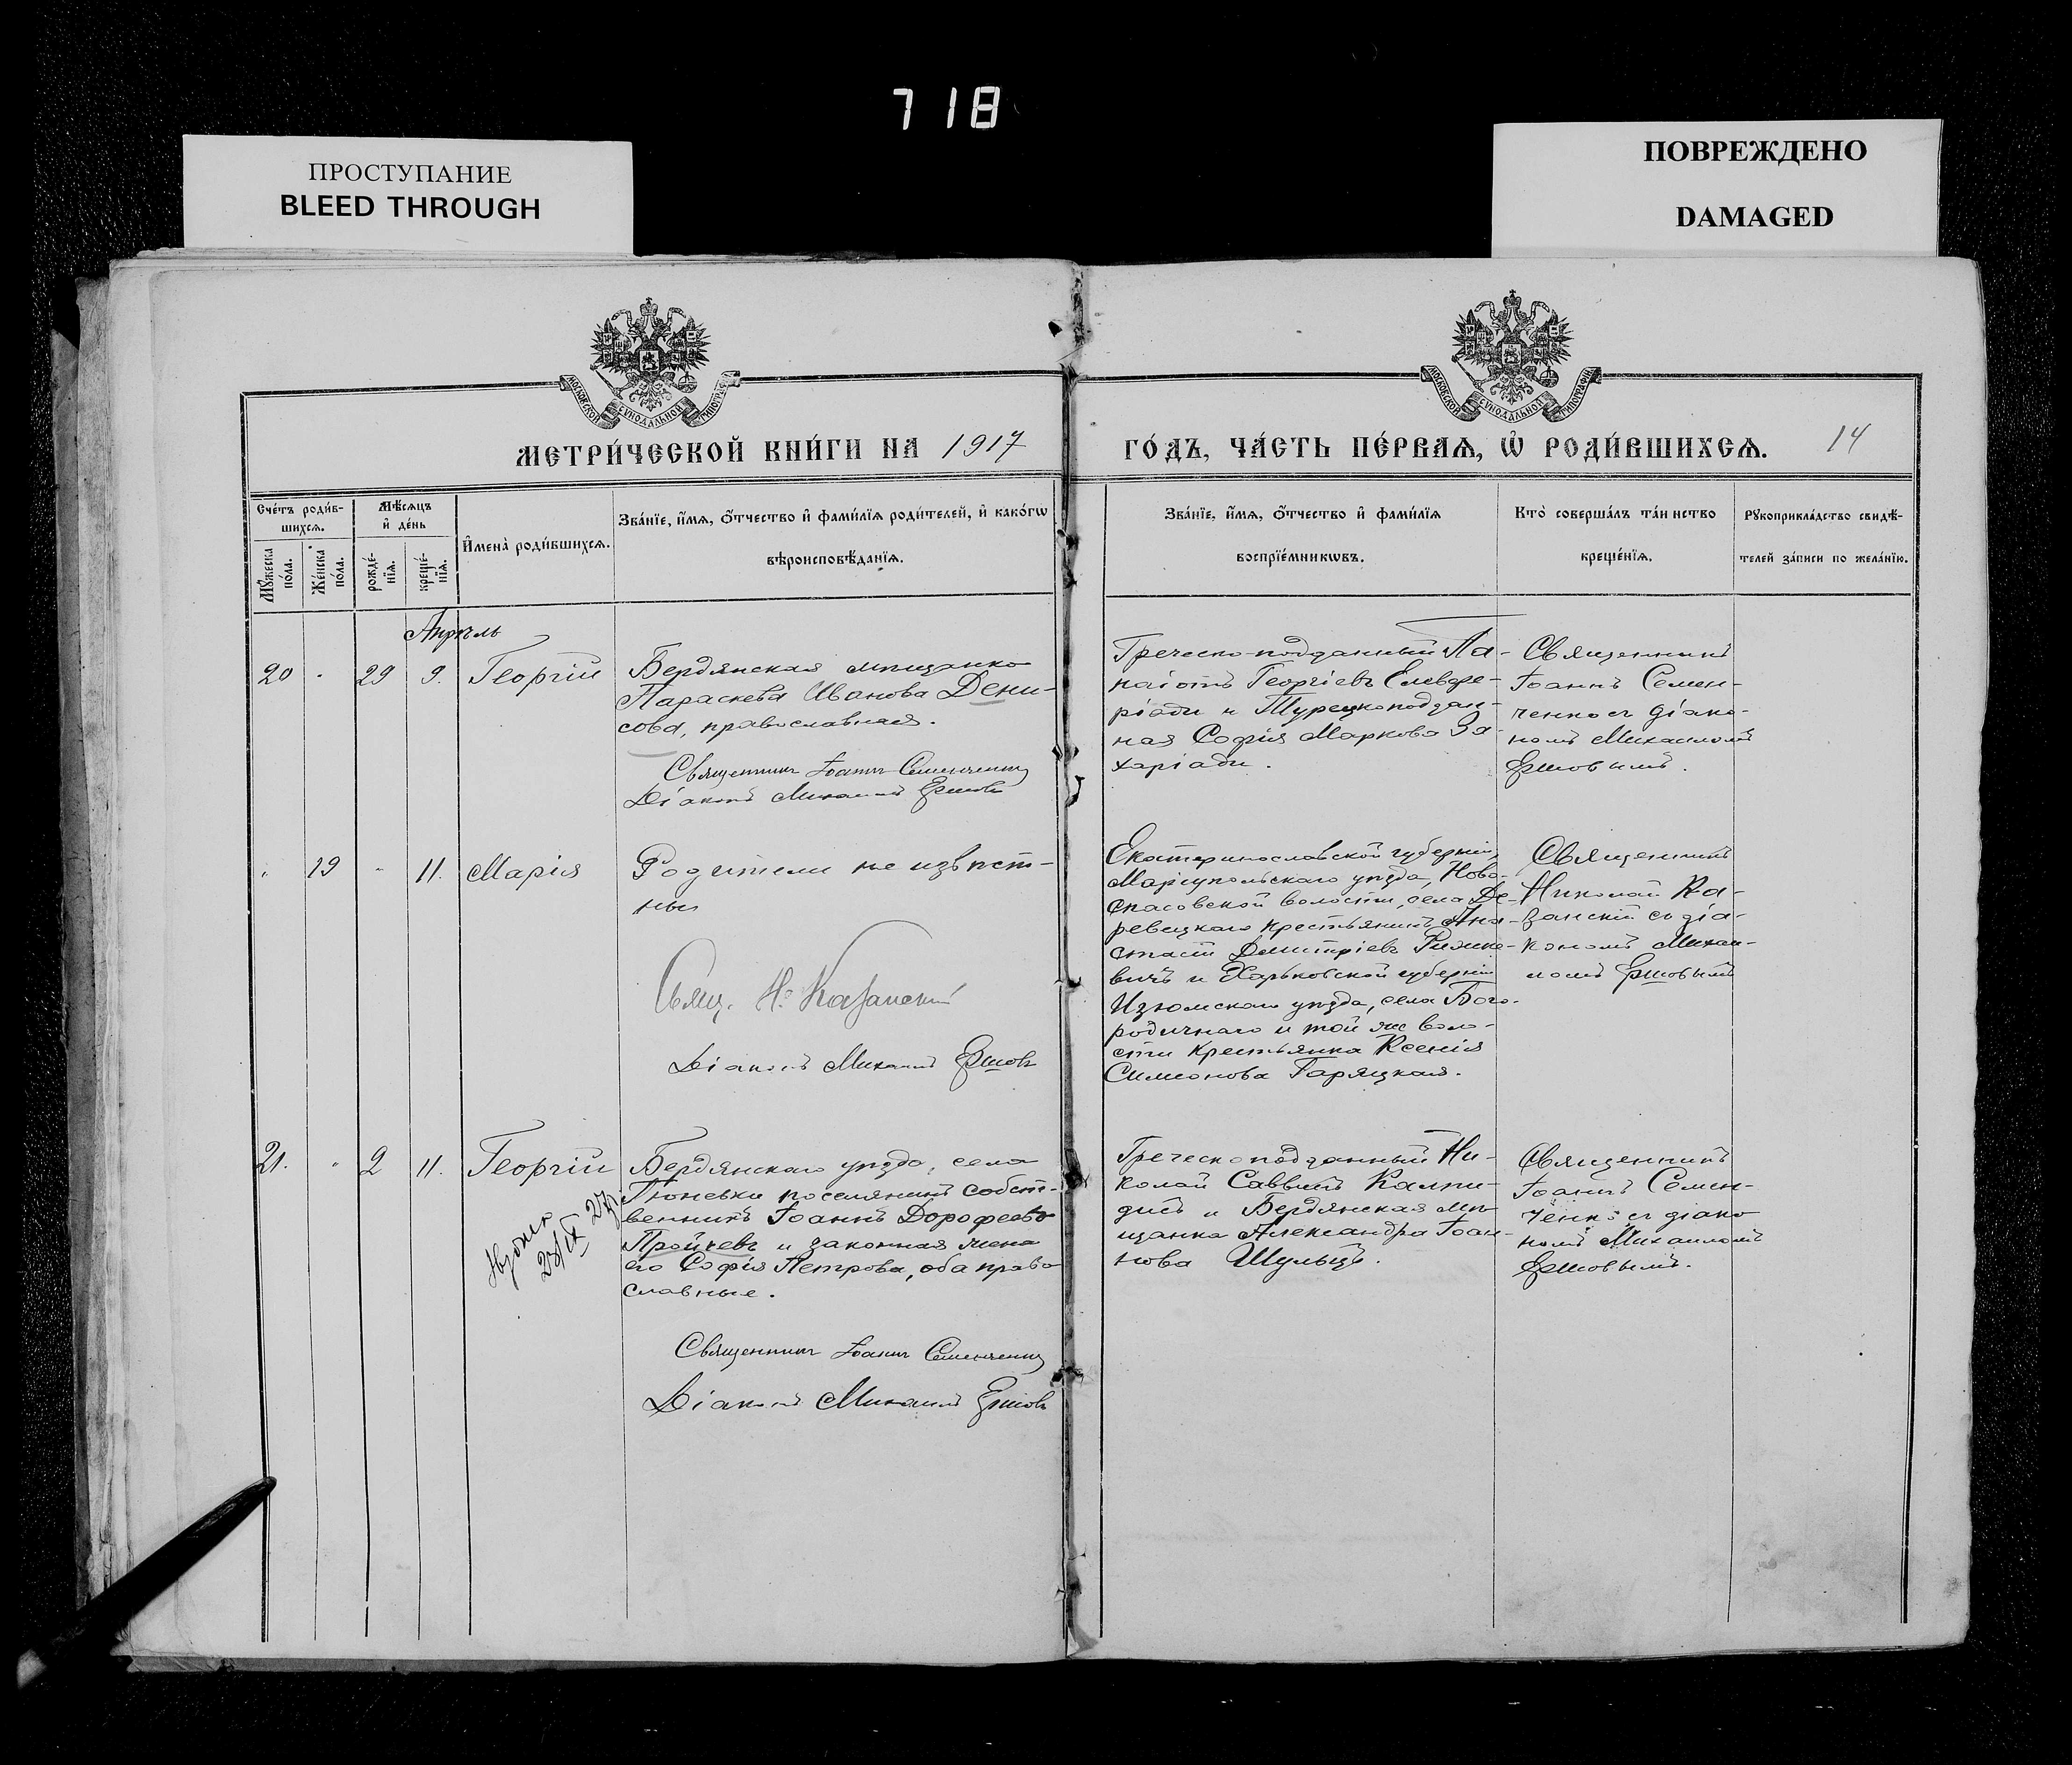 718
ПРОСТУПАНИЕ
BLEED THROUGH
ПОВРЕЖДЕНО
DAMAGED
МОСКОВСКОЙ СѴНОДАЛЬНОЙ ТИПОГРАФІИ
МОСКОВСКОЙ СѴНОДАЛЬНОЙ ТИПОГРАФІИ
МЕТРИ́ЧЕСКОЙ КНИ́ГИ НА 1917
ГО́ДЪ, ЧА́СТЬ ПЕ́РВАѦ, Ѡ҆ РОДИ́ВШИХСѦ. 14
Сче́тъ роди́в-
шихсѧ.
Мѣ́сѧцъ
и҆ де́нь
И҆мена̀ роди́вшихсѧ.
Зва́нїе, и҆́мѧ, ѻ҆́тчество и҆ фами́лїѧ роди́телей, и҆ како́гѡ
вѣроисповѣ́данїѧ.
Мꙋ́жеска
по́ла.
Же́нска
по́ла.
рожде́-
нїѧ.
креще́-
нїѧ.
Зва́нїе, и҆́мѧ, ѻ҆́тчество и҆ фами́лїѧ
воспрїе́мникѡвъ.
Кто̀ соверша́лъ та́инство
креще́нїѧ.
Рꙋкоприкла́дство свидѣ́-
телей за́писи по жела́нїю.
Апрѣль
20 " 29 9. Георгій
Бердянская мѣщанка
Параскева Иванова Дени-
сова, православная.
Священникъ Іоаннъ Семенченко
Діаконъ Михаилъ Ершовъ
Греческо-подданный Па-
наіотъ Георгіевъ Елевфе-
ріади и Турецкоподдан-
ная Софія Маркова За-
харіади.
Священникъ
Іоаннъ Семен-
ченко съ діако-
номъ Михаиломъ
Ершовымъ.
" 19 " 11. Марія
Родители не извѣст-
ны
Свящ. Н. Казанскій
Діаконъ Михаилъ Ершовъ
Екатеринославской губерніи,
Маріупольскаго уѣзда, Ново-
спасовской волости, села Де-
ревецкаго крестьянинъ Ана-
стасій Димитріевъ
вичъ и Харьковской губерніи
Изюмскаго уѣзда, села Бого-
родичнаго и той же воло-
сти крестьянка Ксенія
Симеонова Гаряцкая.
Священникъ
Николай Ка-
занскій съ діа-
кономъ Михаи-
ломъ Ершовымъ
21. " 2 11. Георгій
Бердянскаго уѣзда, села
Гюневки поселянинъ собст-
венникъ Іоаннъ Дорофеевъ
Пройчевъ и законная жена
его Софія Петрова, оба право
славные.
Священникъ Іоаннъ Семенченко
Діаконъ Михаилъ Ершовъ
Греческоподданный Ни-
колай Саввинъ Калпи-
дисъ и Бердянская мѣ-
щанка Александра Іоан-
нова Шульцъ.
Священникъ
Іоаннъ Семен-
ченко съ діако
номъ Михаиломъ
Ершовымъ.